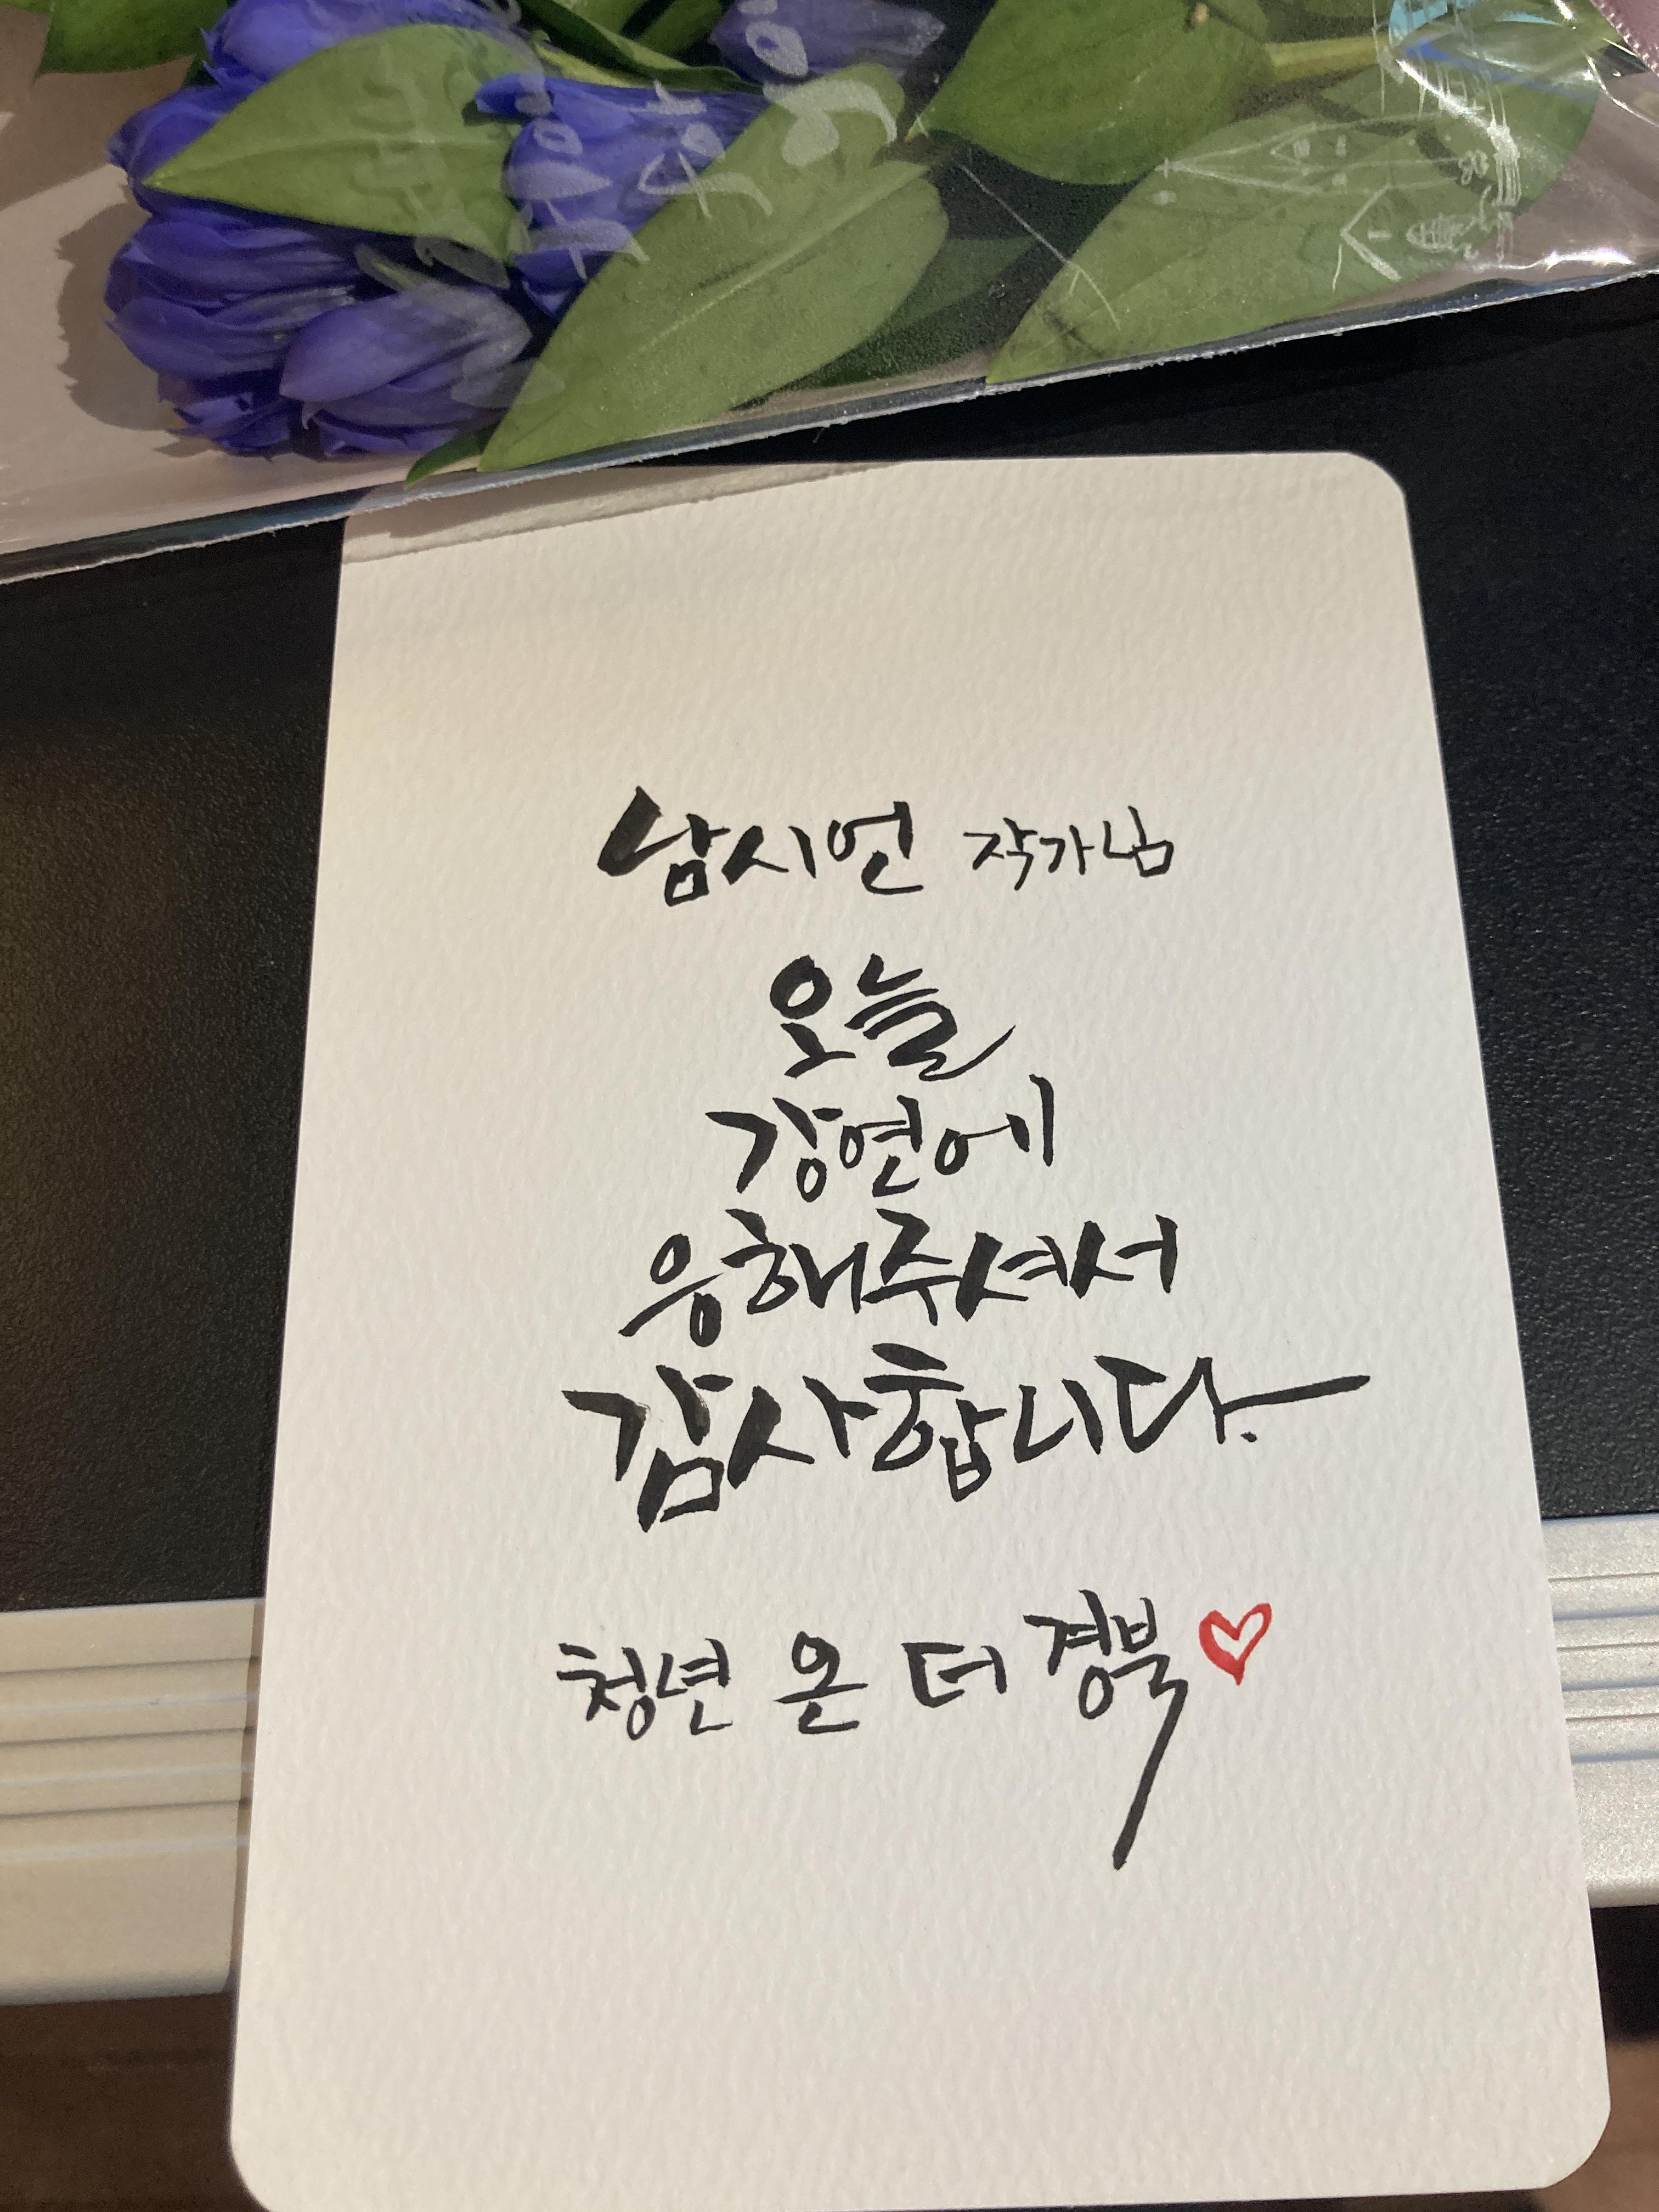 남시언 작가님
오늘
강연에
응해주셔서
감사합니다.
청년 온 더 경북♡